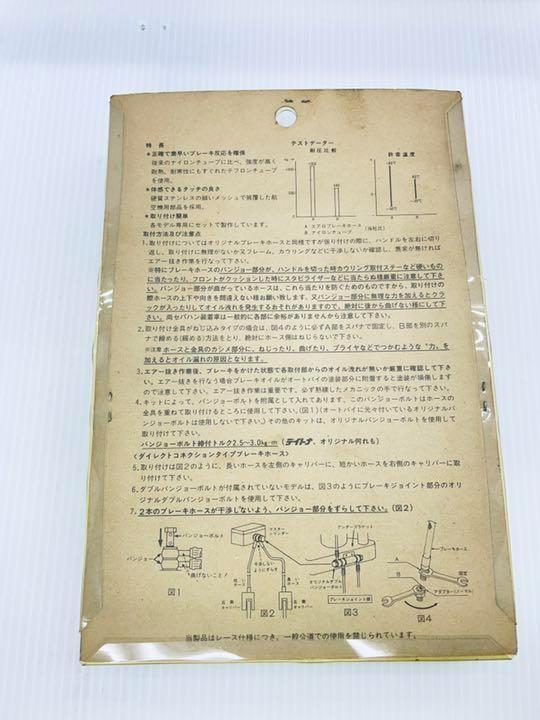 特長
★正確で素早いブレーキ反応を確保
従来のナイロンチューブに比べ、強度が高く
耐熱、耐寒性にもすぐれたテフロンチューブ
を使用。
★体感できるタッチの良さ
硬質ステンレスの細いメッシュで被覆した航
空機用部品を採用。
★取り付け簡単
各モデル専用にセットで製作しています。
テストデーター
耐圧比較
許容温度
A エアロブレーキホース
B ナイロンチューブ
(当社比)
取付方法及び注意点
1. 取り付けについてはオリジナルブレーキホースと同様ですが張り付けの際に、ハンドルを左右に切り
返し、取り付けに無理がないか又フレーム、カウリングなどに干渉しないか確認し、異常が無ければ
エアー抜き作業を行なって下さい。
※特にブレーキホースのバンジョー部分が、ハンドルを切った時カウリング取付ステーなど硬いもの
に当たったり、フロントがクッションした時にスタビライザーなどに当たらぬ様厳重に注意して下さ
い。バンジョー部分が曲がっているホースは、これら当たりを防ぐためのものですから、取り付けの
際ホースの上下や向きを間違えない様お願い致します。又バンジョー部分に無理な力を加えるとクラ
ックが入ったりしてオイル洩れを発生するおそれがありますので、絶対に後から曲げない様にして下
さい。尚セパハン装着車は一般的に各部に余裕がありませんから注意して下さい。
2. 取り付け金具がねじ込みタイプの場合は、図4のように必ずA部をスパナで固定し、B部を別のスパ
ナで締める(緩める)方法をとり、絶対にホース側はねじらないで下さい。
※注意 ホースと金具のカシメ部分に、ねじったり、曲げたり、プライヤなどでつかむような“力”を
加えるとオイル漏れの原因となります。
3. エアー抜き作業後、ブレーキをかけた状態で各取付部からのオイル洩れが無いか厳重に確認して下さ
い。エアー抜きを行なう場合ブレーキオイルがオートバイの塗装部分に附着すると塗装が損傷します
ので注意して下さい。エアー抜き作業は重要です、必ず熟練したメカニックの手で行なって下さい。
4. キットによって、バンジョーボルトを附属として入れてあります、このバンジョーボルトはホースの
金具を重ねて取り付けるところに使用して下さい。(図1)(オートバイに元々付いているオリジナルバ
ンジョーボルトは使用しないで下さい。)その他のキットは、オリジナルバンジョーボルトを使用して
取り付けて下さい。
バンジョーボルト締付トルク2.5〜3.0kg-m(デイトナ、オリジナル何れも)
<ダイレクトコネクションタイプブレーキホース>
5. 取り付けは図2のように、長いホースを左側のキャリパーに、短かいホースを右側のキャリパーに取り
付けて下さい。
6. ダブルバンジョーボルトが付属されていないモデルは、図3のようにブレーキジョイント部分のオリ
ジナルダブルバンジョーボルトを使用して下さい。
7. 2本のブレーキホースが干渉しないよう、バンジョー部分をずらして下さい。(図2)
バンジョーボルト
バンジョー
曲げないこと!
図1
マスター
シリンダー
干渉しない
ようにずらす
短い
ホース
長い
ホース
右側
キャリパー
左側
キャリパー
図2
アンダーブラケット
オリジナルダブル
バンジョーボルト
ブレーキジョイント部
右側
キャリパー
左側
キャリパー
図3
ブレーキホース
A
B
固定
アダプター(ノーマル)
図4
当製品はレース仕様につき、一般公道での使用を禁じられています。